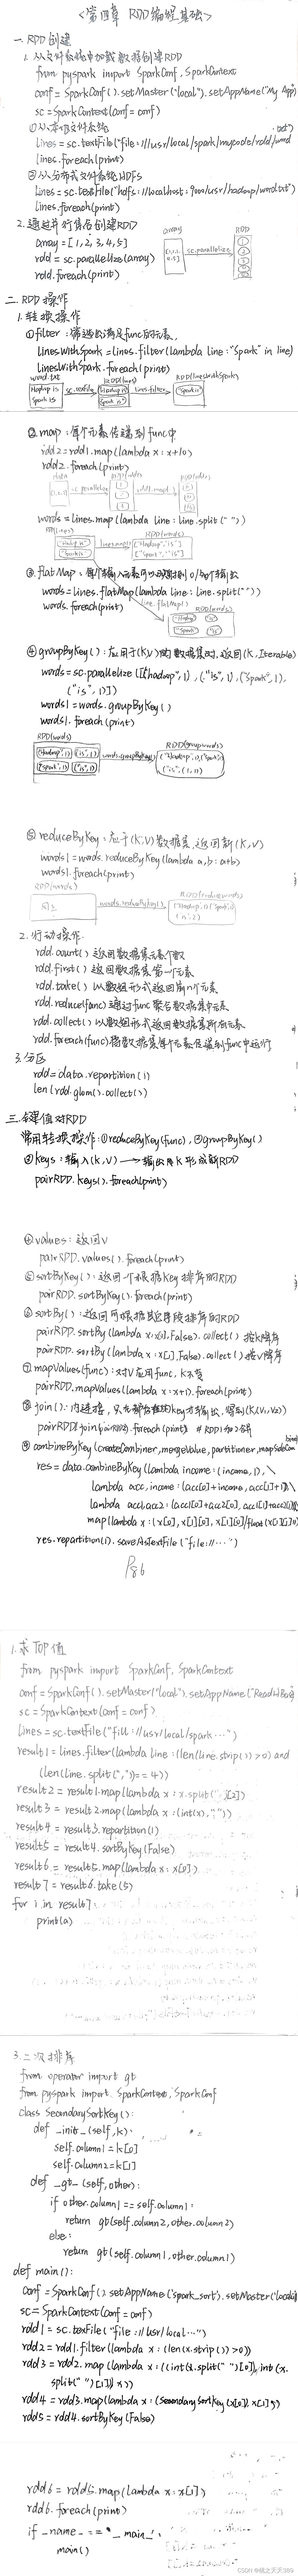 <第四章 RDD编程基础>
一. RDD创建
1. 从文件系统中加载数据创建RDD
from pyspark import SparkConf, SparkContext
conf = SparkConf().setMaster("local").setAppName("My App")
sc = SparkContext(conf=conf)
①从本地文件系统
lines = sc.textFile("file:///usr/local/spark/mycode/rdd/word.txt")
lines.foreach(print)
②从分布式文件系统HDFS
lines = sc.textFile("hdfs://localhost:9000/usr/hadoop/word.txt")
lines.foreach(print)
2. 通过并行集合创建RDD
array = [1,2,3,4,5]
rdd = sc.parallelize(array)
rdd.foreach(print)
array
sc.parallelize
RDD
二. RDD操作
1. 转换操作
①filter:筛选出满足func的元素
linesWithSpark = lines.filter(lambda line: "Spark" in line)
linesWithSpark.foreach(print)
word.txt
Hadoop is
Spark is
sc.textFile
RDD(lines)
"Hadoop is"
"Spark is"
lines.filter
RDD(linesWithSpark)
"Spark is"
②map:每个元素传递到func中
rdd2 = rdd1.map(lambda x: x+10)
rdd2.foreach(print)
words = lines.map(lambda line: line.split(" "))
RDD(lines)
"Hadoop is"
"Spark is"
lines.map()
RDD(words)
["Hadoop","is"]
["Spark","is"]
③flatMap:
words = lines.flatMap(lambda line: line.split(" "))
words.foreach(print)
line.flatMap()
RDD(words)
"Hadoop" "is"
"Spark" "is"
④groupByKey():应用于(K,V)的数据集时,返回(K, Iterable)
words = sc.parallelize([("hadoop",1),("is",1),("spark",1),
("is",1)])
words1 = words.groupByKey()
words1.foreach(print)
RDD(words)
("Hadoop",1) ("is",1)
("spark",1) ("is",1)
words.groupByKey
RDD(groupwords)
("is",(1,1))
⑤reduceByKey:应于(K,V)数据集,返回新(K,V)
words1 = words.reduceByKey(lambda a,b: a+b)
words1.foreach(print)
RDD(words)
同上
words.reduceByKey()
RDD(reducewords)
2. 行动操作
rdd.count() 返回数据集元素个数
rdd.first() 返回数据集第一个元素
rdd.take() 以数组形式返回前n个元素
rdd.reduce(func) 通过func聚合数据集中元素
rdd.collect() 以数组形式返回数据集所有元素
rdd.foreach(func) 将数据集每个元素传递到func中运行
3. 分区
rdd = data.repartition(1)
len(rdd.glom().collect())
三. 键值对RDD
常用转换操作:①reduceByKey(func), ②groupByKey()
③keys:输入(k,v) → 输出 k 形成新RDD
pairRDD.keys().foreach(print)
④values:返回V
pairRDD.values().foreach(print)
⑤sortByKey():返回一个根据key排序的RDD
pairRDD.sortByKey().foreach(print)
⑥sortBy():返回可根据其它字段排序的RDD
pairRDD.sortBy(lambda x: x[0], False).collect() 按k降序
pairRDD.sortBy(lambda x: x[1], False).collect() 按v降序
⑦mapValues(func):对V应用func, K不变
pairRDD.mapValues(lambda x: x+1).foreach(print)
⑧join():内连接, 得到(K,(V1,V2))
pairRDD1.join(pairRDD2).foreach(print)
⑨combineByKey(createCombiner, mergeValue, partitioner, mapSideCom
res = data.combineByKey(lambda income: (income,1), \
lambda acc, income: (acc[0]+income, acc[1]+1), \
lambda acc1,acc2: (acc1[0]+acc2[0], acc1[1]+acc2[1])).
map(lambda x: (x[0], x[1][0], x[1][0]/float(x[1][1])))
res.repartition(1).saveAsTextFile("file://…")
P86
1. 求TOP值
from pyspark import SparkConf, SparkContext
conf = SparkConf().setMaster("local").setAppName("ReadHBase")
sc = SparkContext(conf=conf)
lines = sc.textFile("fill://usr/local/spark…")
result1 = lines.filter(lambda line: (len(line.strip())>0) and
(len(line.split(","))== 4))
result2 = result1.map(lambda x: x.split(",")[2])
result3 = result2.map(lambda x: (int(x),""))
result4 = result3.repartition(1)
result5 = result4.sortByKey(False)
result6 = result5.map(lambda x: x[0])
result7 = result6.take(5)
for i in result7:
print(a)
3. 二次排序
from operator import gt
from pyspark import SparkContext, SparkConf
class SecondarySortKey():
def _init_(self,k):
self.column1 = k[0]
self.column2 = k[1]
def _gt_(self, other):
if other.column1 == self.column1:
return gt(self.column2, other.column2)
else:
return gt(self.column1, other.column1)
def main():
conf = SparkConf().setAppName('spark_sort').setMaster('local')
sc = SparkContext(conf=conf)
rdd1 = sc.texFile("file://usr/local…")
rdd2 = rdd1.filter(lambda x: (len(x.strip())>0))
rdd3 = rdd2.map(lambda x: ((int(x.split(" ")[0]), int(x.
split(" ")[1])), x))
rdd4 = rdd3.map(lambda x: (SecondarySortKey(x[0]), x[1]))
rdd5 = rdd4.sortByKey(False)
rdd6 = rdd5.map(lambda x: x[1])
rdd6.foreach(print)
if _name_ == '_main_':
main()